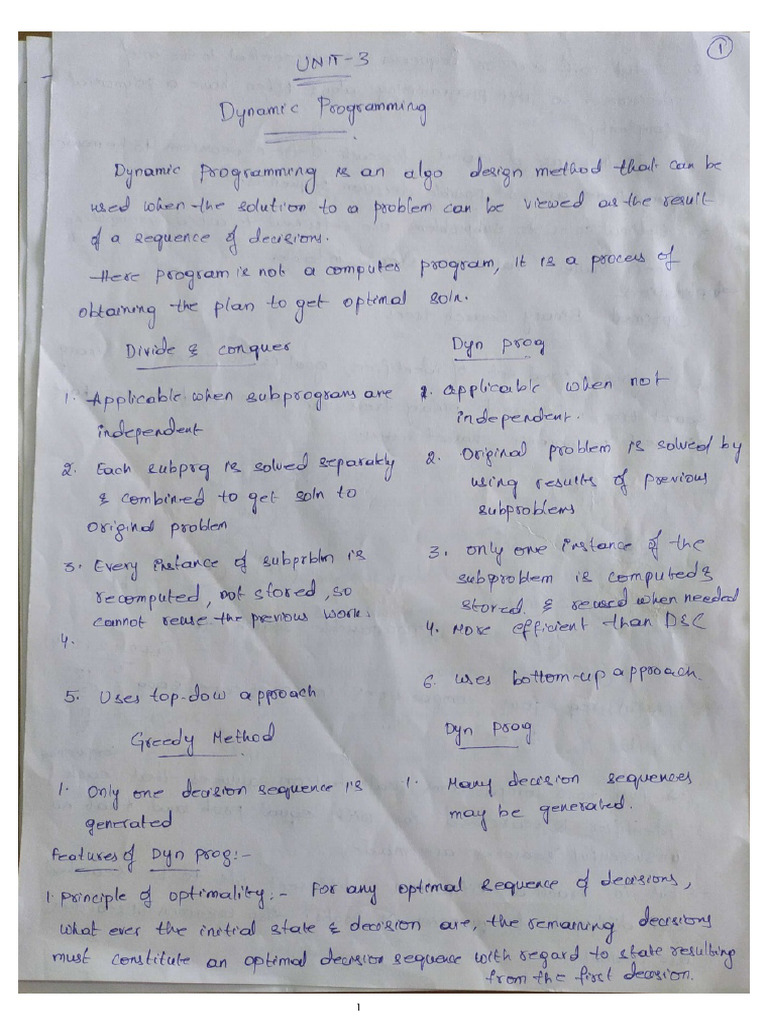 1
UNIT-3
Dynamic Programming
Dynamic Programming is an algo design method that can be
used when the solution to a problem can be viewed as the result
of a sequence of decisions.
Here program is not a computer program, it is a process of
obtaining the plan to get optimal soln.
Divide & conquer
1. Applicable when subprograms are
independent
2. Each subprg is solved separately
& combined to get soln to
original problem
3. Every instance of subprblm is
recomputed, not stored, so
cannot reuse the previous work.
4.
5. Uses top-dow approach
Dyn prog
1. applicable when not
independent.
2. Original problem is solved by
using results of previous
subproblems
3. only one instance of the
subproblem is computed &
stored. & reused when needed
4. More efficient than D&C
6. uses bottom-up approach.
Greedy Method
1. Only one decision sequence is
generated
Dyn prog
1. Many decision sequences
may be generated.
Features of Dyn prog:-
1. principle of optimality:- For any optimal sequence of decisions,
what ever the initial state & decision are, the remaining decisions
must constitute an optimal decision sequence with regard to state resulting
from the first decision.
1